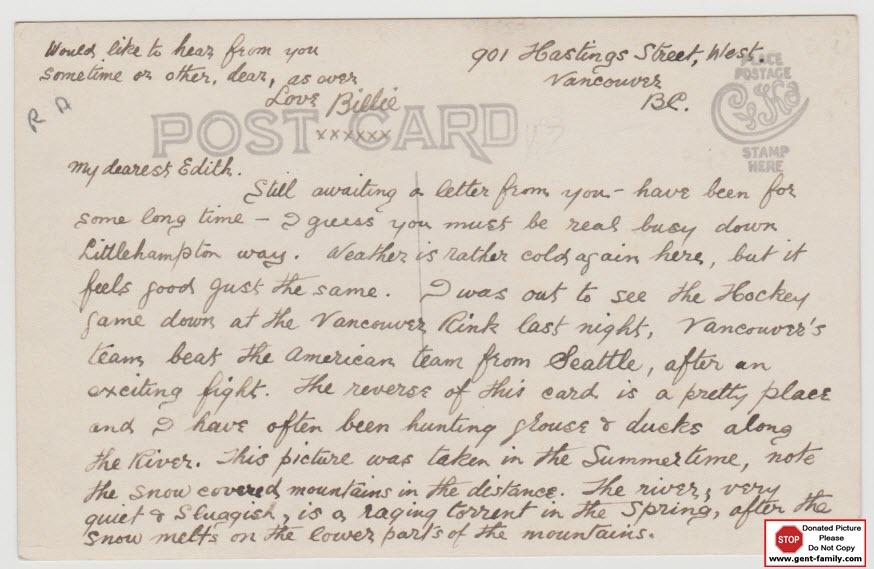 Would like to hear from you
sometime or other, dear, as ever
Love Billie
xxxxxx
901 Hastings Street, West.
Vancouver
B.C.
R A
POST CARD
PLACE
POSTAGE
STAMP
HERE
My dearest Edith.
Still awaiting a letter from you - have been for
some long time - I guess you must be real busy down
Littlehampton way. Weather is rather cold again here, but it
feels good just the same. I was out to see the Hockey
game down at the Vancouver Rink last night, Vancouver's
team beat the American team from Seattle, after an
exciting fight. The reverse of this card is a pretty place
and I have often been hunting grouse & ducks along
the River. This picture was taken in the Summertime, note
the snow covered mountains in the distance. The river, very
quiet & Sluggish, is a raging torrent in the Spring, after the
snow melts on the lower parts of the mountains.
STOP
Donated Picture
Please
Do Not Copy
www.gent-family.com